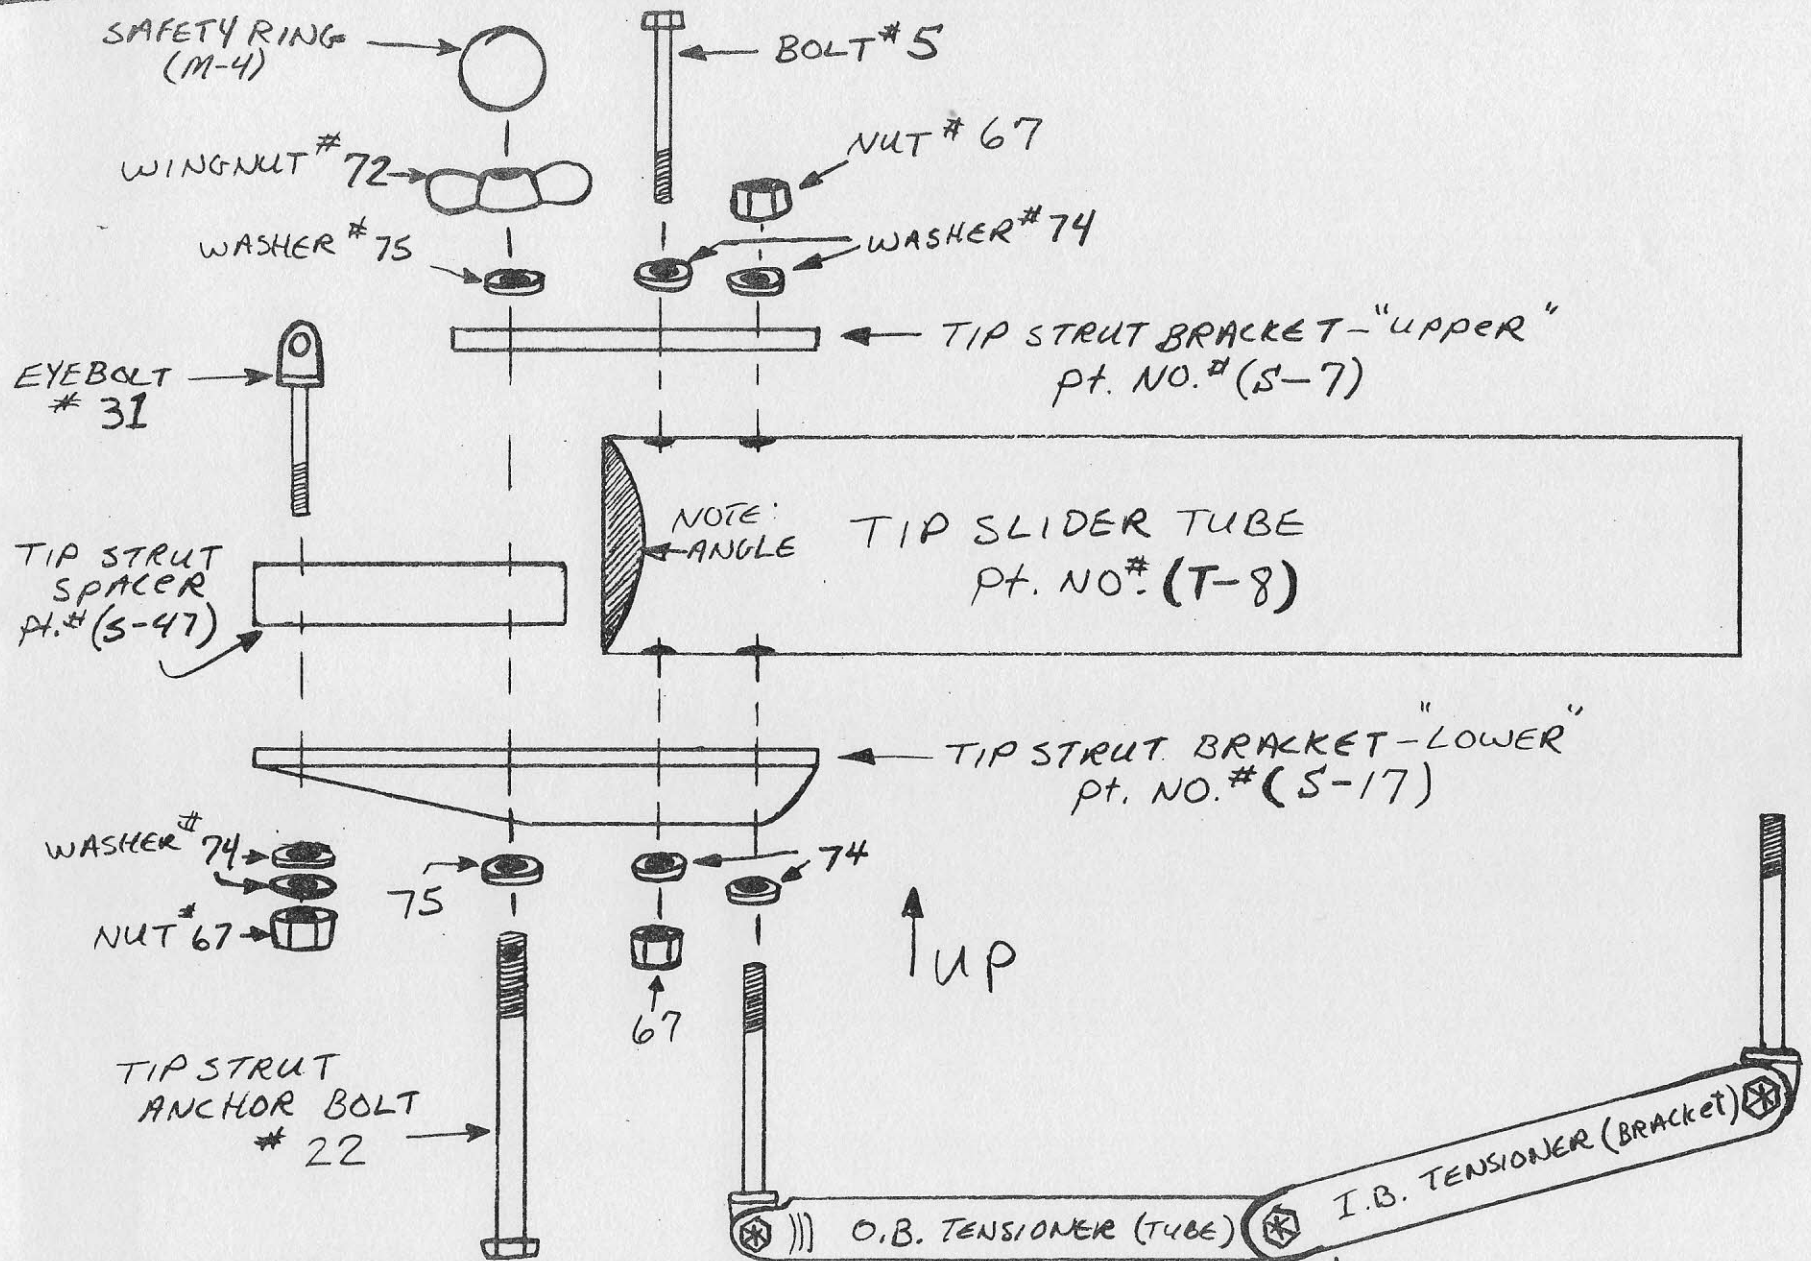 SAFETY RING
(M-4)
BOLT # 5
NUT # 67
WINGNUT # 72
WASHER # 75
WASHER # 74
TIP STRUT BRACKET - "UPPER"
Pt. NO. # (S-7)
EYEBOLT
# 31
NOTE:
ANGLE
TIP SLIDER TUBE
Pt. NO. # (T-8)
TIP STRUT
SPACER
Pt. # (S-47)
TIP STRUT BRACKET - "LOWER"
Pt. NO. # (S-17)
WASHER # 74
75
74
NUT # 67
67
UP
TIP STRUT
ANCHOR BOLT
# 22
O.B. TENSIONER (TUBE)
I.B. TENSIONER (BRACKET)